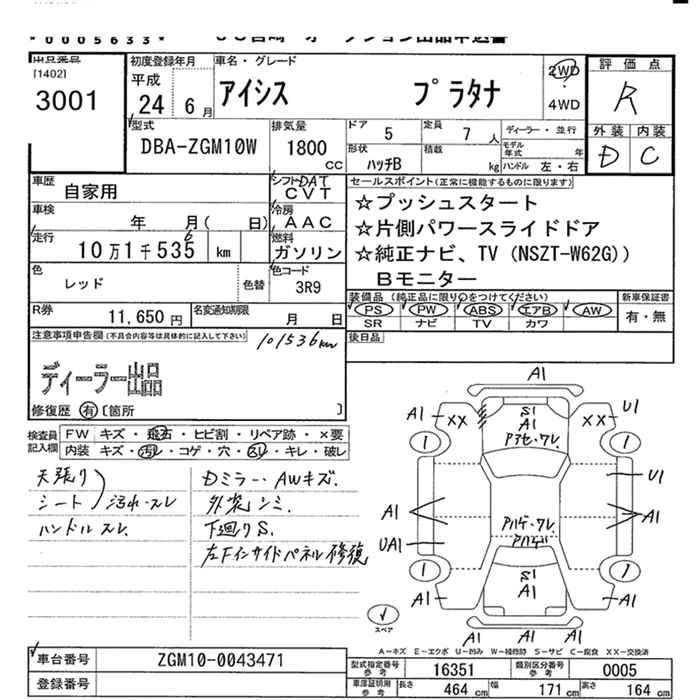 *0005633*
[1402]
3001
初度登録年月
平成
24 6月
車名・グレード
アイシス プラタナ
2WD
4WD
評価点
R
外装 内装
D C
型式
DBA-ZGM10W
排気量
1800
CC
ドア 5
定員 7人
形状 ハッチB
積載 kg
ディーラー・並行
モデル年式 年
ハンドル 左・右
車歴 自家用
シフト DAT
CVT
車検 年 月( 日)
冷房
AAC
走行 10万1千535 6 km
燃料
ガソリン
色 レッド 色替
色コード
3R9
R券 11,650円
名変通知期限 月 日
セールスポイント(正常に機能するものに限ります)
☆プッシュスタート
☆片側パワースライドドア
☆純正ナビ、TV(NSZT-W62G))
Bモニター
装備品(純正品に限り○をつけてください)
PS PW ABS エアB AW
SR ナビ TV カワ
新車保証書
有・無
後日品
注意事項申告欄(不具合内容等は具体的に記入して下さい)
101536km
ディーラー出品
修復歴 有 〔箇所 〕
検査員記入欄
FW キズ・飛石・ヒビ割・リペア跡・×要
内装 キズ・汚れ・コゲ・穴・スレ・キレ・破レ
天張り
シート 汚れ・スレ
ハンドルスレ
Dミラー・AWキズ.
外装シミ.
下廻りS.
左Fインサイドパネル修復
A1
A1 XX S1 XX U1
A1
1 1
U1
A1 A1
UA1
1 S1 1
A1
A1 A1
A1 A1
スペア
A-キズ E-エクボ U-凹み W-補修跡 S-サビ C-腐食 XX-交換済
車台番号 ZGM10-0043471
登録番号
型式指定番号参考 16351
類別区分番号参考 0005
車庫証明用参考 長さ 464 cm 幅 171 cm 高さ 164 cm